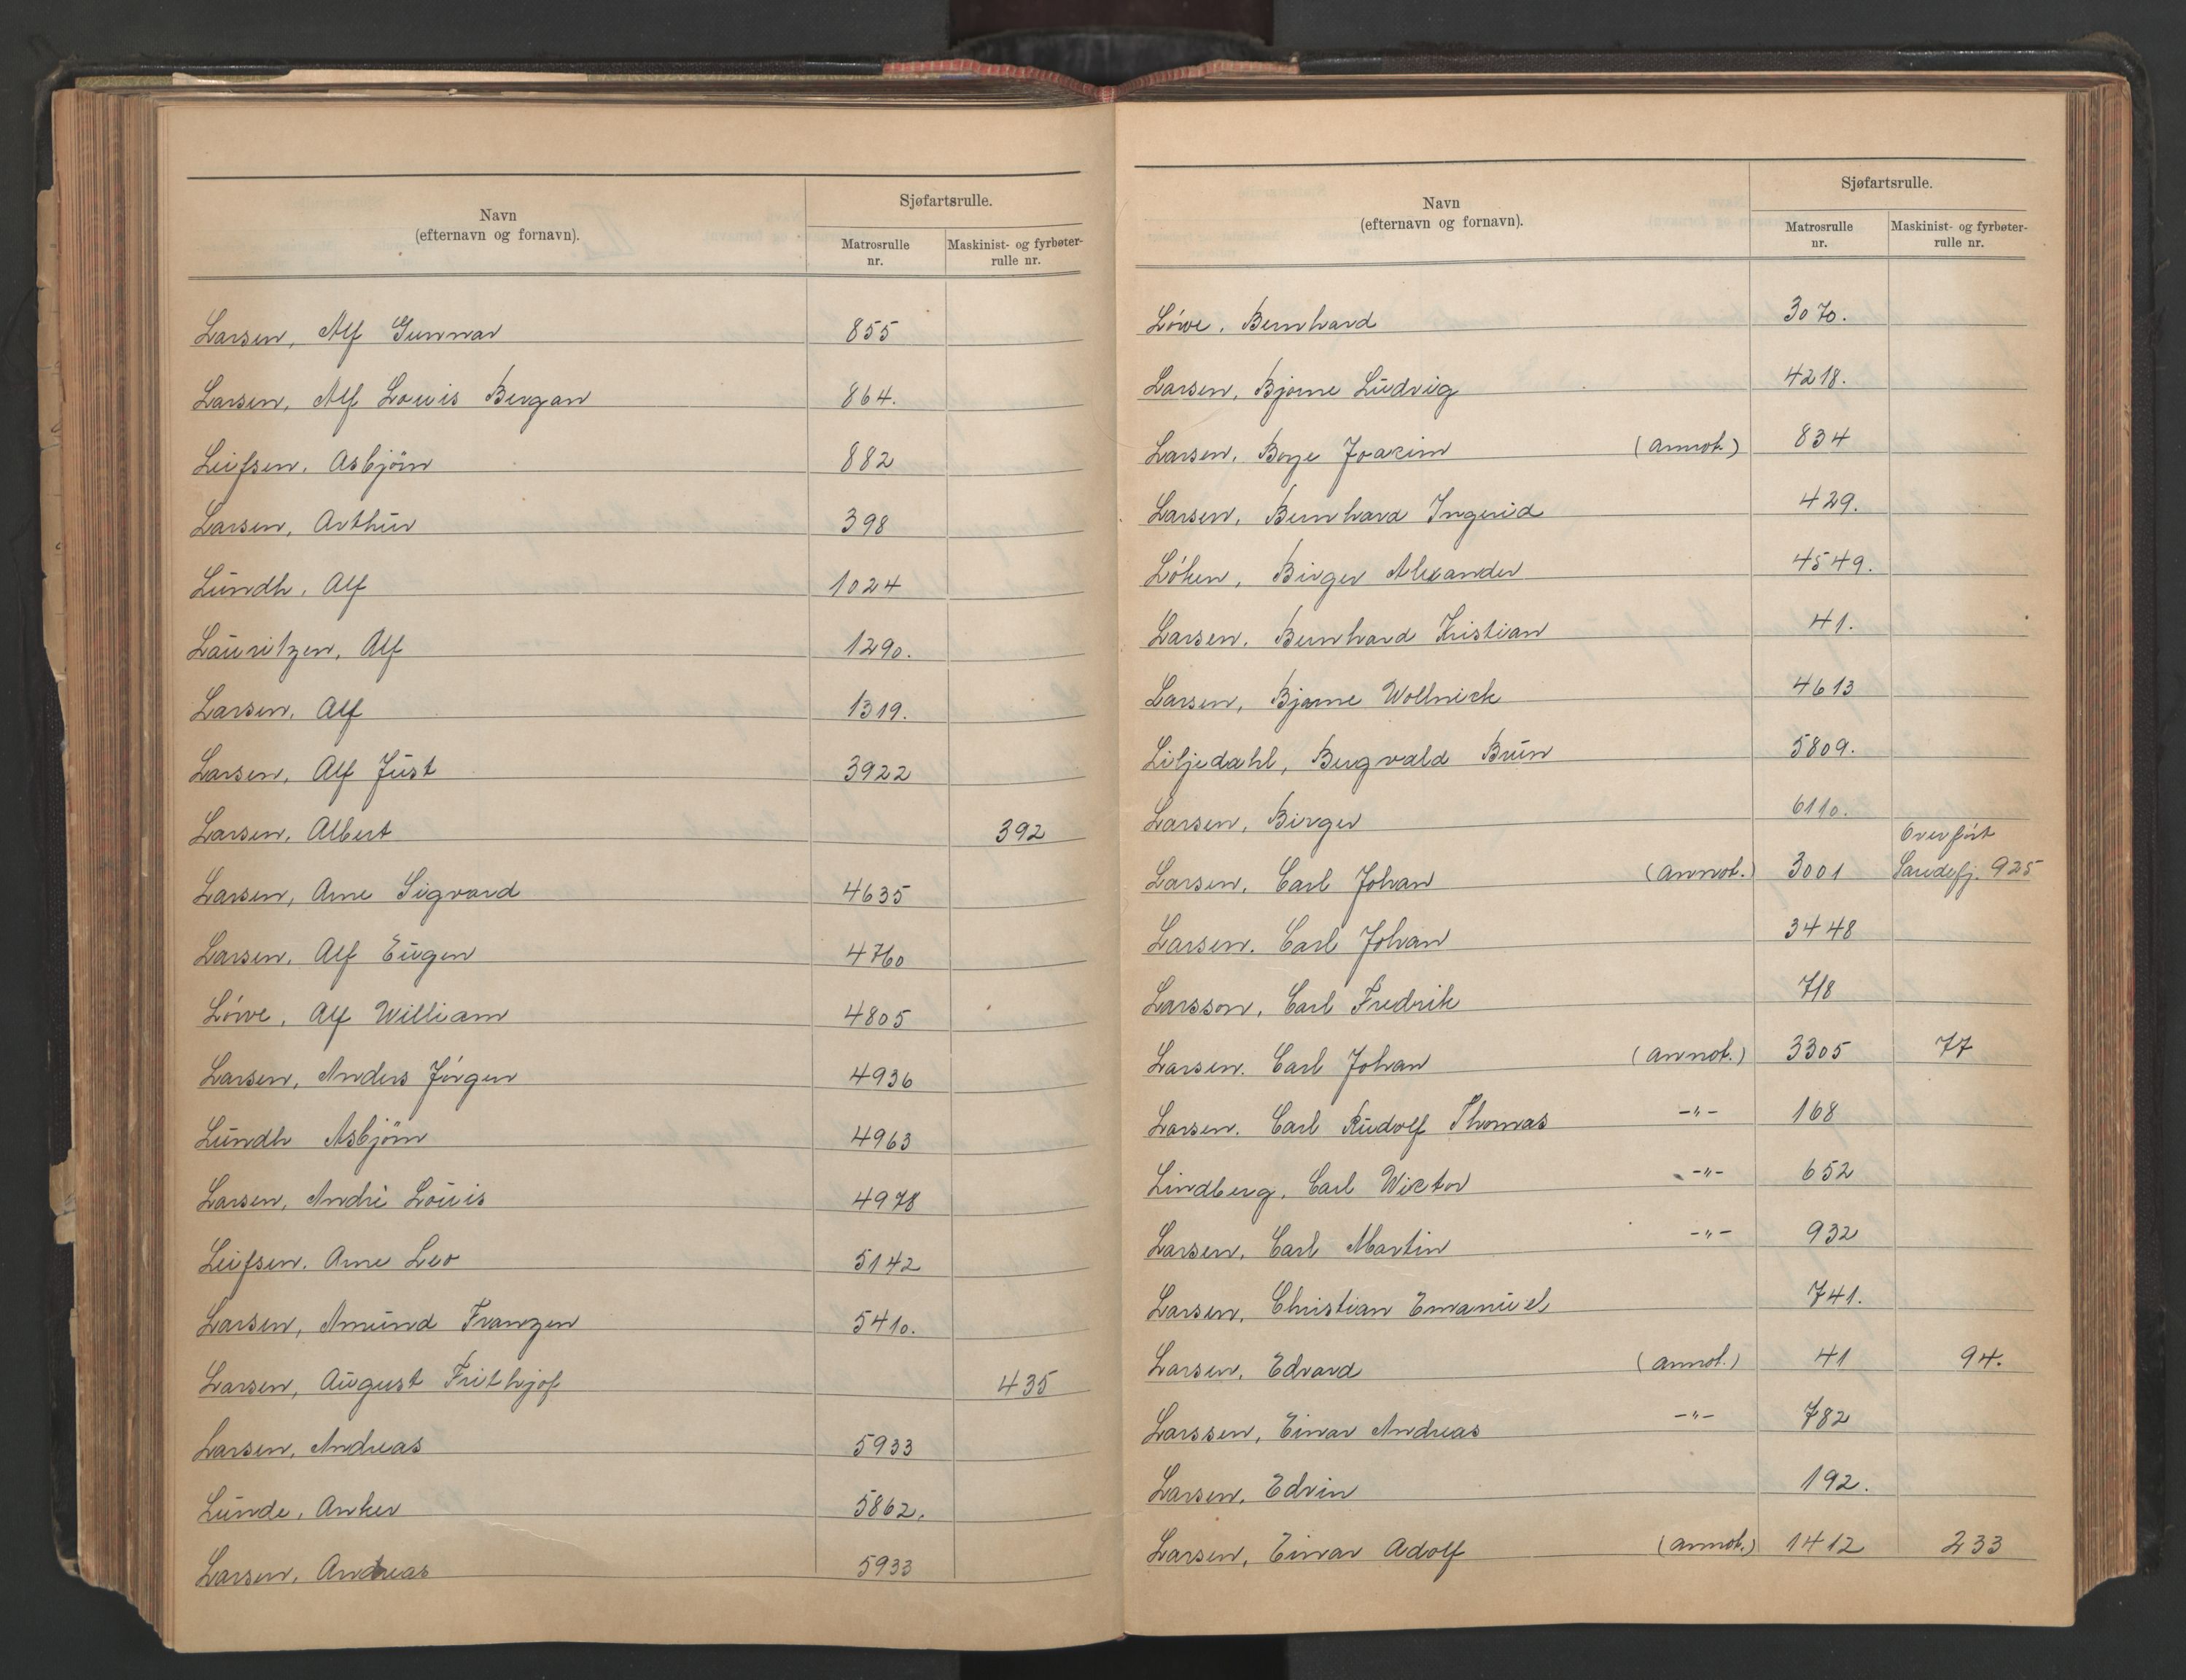 Navn
(efternavn og fornavn).
Sjøfartsrulle.
Matrosrulle
nr.
Maskinist- og fyrbøter-
rulle nr.
Larsen, Alf Gunnar 855
Larsen, Alf Louis Bergan 864.
Leifsen, Asbjörn 882
Larsen, Arthur 398
Lundh, Alf 1024
Lauritzen, Alf 1290.
Larsen, Alf 1319.
Larsen, Alf Just 3922
Larsen, Albert 392
Larsen, Arne Sigvard 4635
Larsen, Alf Eugen 4760
Löwe, Alf William 4805
Larsen, Anders Jörgen 4936
Lundh Asbjörn 4963
Larsen, André Louis 4978
Leifsen. Arne Leo 5142
Larsen, Amund Franzen 5410.
Larsen, August Frithjof 435
Larsen, Andreas 5933
Lunde, Anker 5862.
Larsen, Andreas 5933
Navn
(efternavn og fornavn).
Sjøfartsrulle.
Matrosrulle
nr.
Maskinist- og fyrbøter-
rulle nr.
Löwe, Bernhard 3070.
Larsen, Bjarne Ludvig 4218.
Larsen, Borge Joacim (annot.) 834
Larsen, Bernhard Ingerid 429.
Löken, Birger Alexander 4549.
Larsen, Bernhard Kristian 41.
Larsen, Bjarne Wollnick 4613
Liljedahl, Bergvald Brun 5809.
Larsen, Birger 6110.
Overfört
Larsen, Carl Johan (annot.) 3001 Sandefj. 925
Larsen. Carl Johan 3448
Larsson, Carl Fredrik 718
Larsen. Carl Johan (annot.) 3305 77
Larsen. Carl Rudolf Thomas -"- 168
Lindberg, Carl Wictor -"- 652
Larsen, Carl Martin -"- 932
Larsen, Christian Emanuel 741.
Larsen, Edvard (annot.) 41 94.
Larssen, Einar Andreas -"- 782
Larsen, Edvin 192.
Larsen, Einar Adolf (annot.) 1412 233